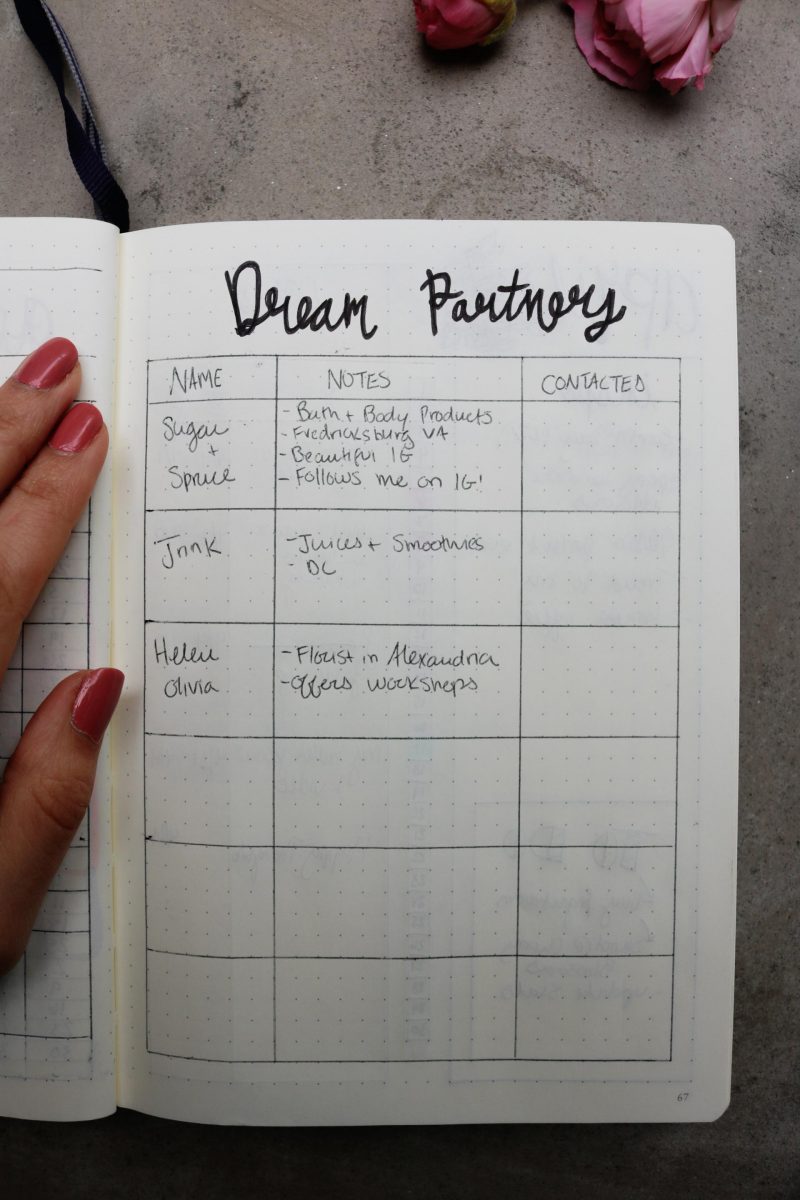 Dream Partners
NAME
NOTES
CONTACTED
Sugar
+
Spruce
- Bath + Body Products
- Fredricksburg VA
- Beautiful IG
- Follows me on IG!
- Juices + Smoothies
- DC
Helen
Olivia
- Florist in Alexandria
- Offers workshops
67